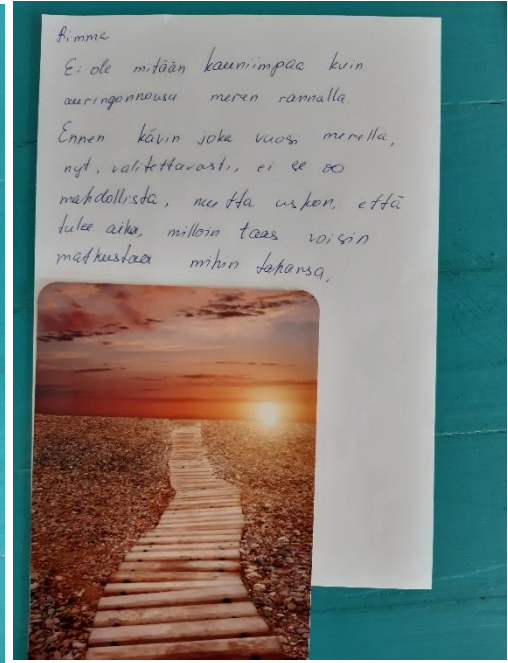 Rimma
Ei ole mitään kauniimpaa kuin
auringonnousu meren rannalla.
Ennen kävin joka vuosi merellä,
nyt, valitettavasti, ei se oo
mahdollista, mutta uskon, että
tulee aika, milloin taas voisin
matkustaa mihin tahansa,